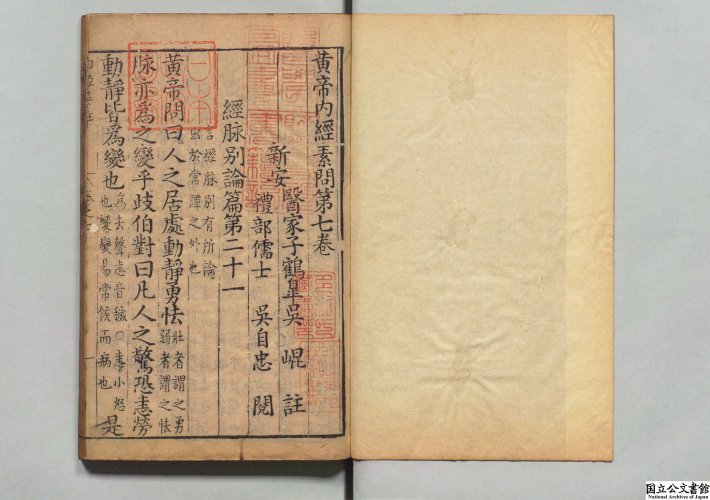 黄帝内經素問第七卷
新安
醫家子鶴皐吳崐註
禮部儒士 吳自忠閱
經脉别論篇第二十一
言經脉别有所論
出於常譚之外也
黄帝問曰人之居處動靜勇怯壯者謂之勇弱者謂之怯
脉亦爲之變乎歧伯對曰凡人之驚恐恚勞
動靜皆爲變也爲去聲恚音穢○恚小怒也變變易常候而病也是
国立公文書館
National Archives of Japan